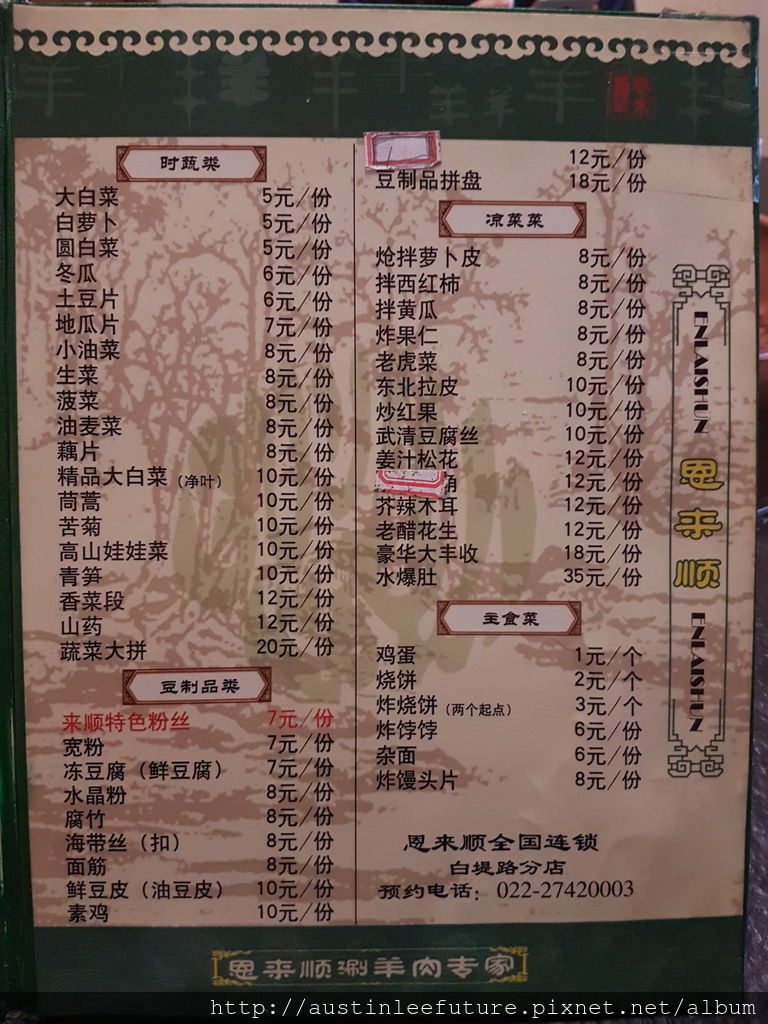 时蔬类
大白菜 5元/份
白萝卜 5元/份
圆白菜 5元/份
冬瓜 6元/份
土豆片 6元/份
地瓜片 7元/份
小油菜 8元/份
生菜 8元/份
菠菜 8元/份
油麦菜 8元/份
藕片 8元/份
精品大白菜(净叶) 10元/份
茼蒿 10元/份
苦菊 10元/份
高山娃娃菜 10元/份
青笋 10元/份
香菜段 12元/份
山药 12元/份
蔬菜大拼 20元/份
豆制品类
来顺特色粉丝 7元/份
宽粉 7元/份
冻豆腐(鲜豆腐) 7元/份
水晶粉 8元/份
腐竹 8元/份
海带丝(扣) 8元/份
面筋 8元/份
鲜豆皮(油豆皮) 10元/份
素鸡 10元/份
12元/份
豆制品拼盘 18元/份
凉菜菜
炝拌萝卜皮 8元/份
拌西红柿 8元/份
拌黄瓜 8元/份
炸果仁 8元/份
老虎菜 8元/份
东北拉皮 10元/份
炒红果 10元/份
武清豆腐丝 10元/份
姜汁松花 12元/份
12元/份
芥辣木耳 12元/份
老醋花生 12元/份
豪华大丰收 18元/份
水爆肚 35元/份
主食菜
鸡蛋 1元/个
烧饼 2元/个
炸烧饼(两个起点) 3元/个
炸饽饽 6元/份
杂面 6元/份
炸馒头片 8元/份
恩来顺全国连锁
白堤路分店
预约电话：022-27420003
ENLAISHUN
恩来顺
ENLAISHUN
恩来顺涮羊肉专家
http://austinleefuture.pixnet.net/album